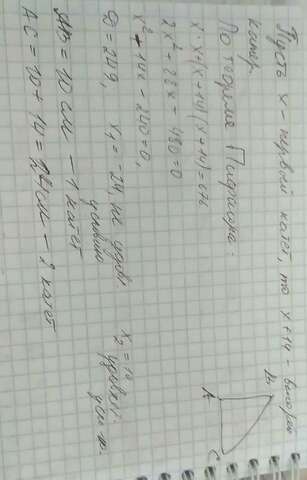 Пусть x - первый катет, то x+14 - второй
катет.
По теореме Пифагора:
x·x+(x+14)(x+14)=676
2x²+28x-480=0
x²+14x-240=0,
D=289, x₁=-24, не удов. x₂=10
условию удовл.
AB=10 см - 1 катет
AC=10+14=24 см - 2 катет
B
A
C